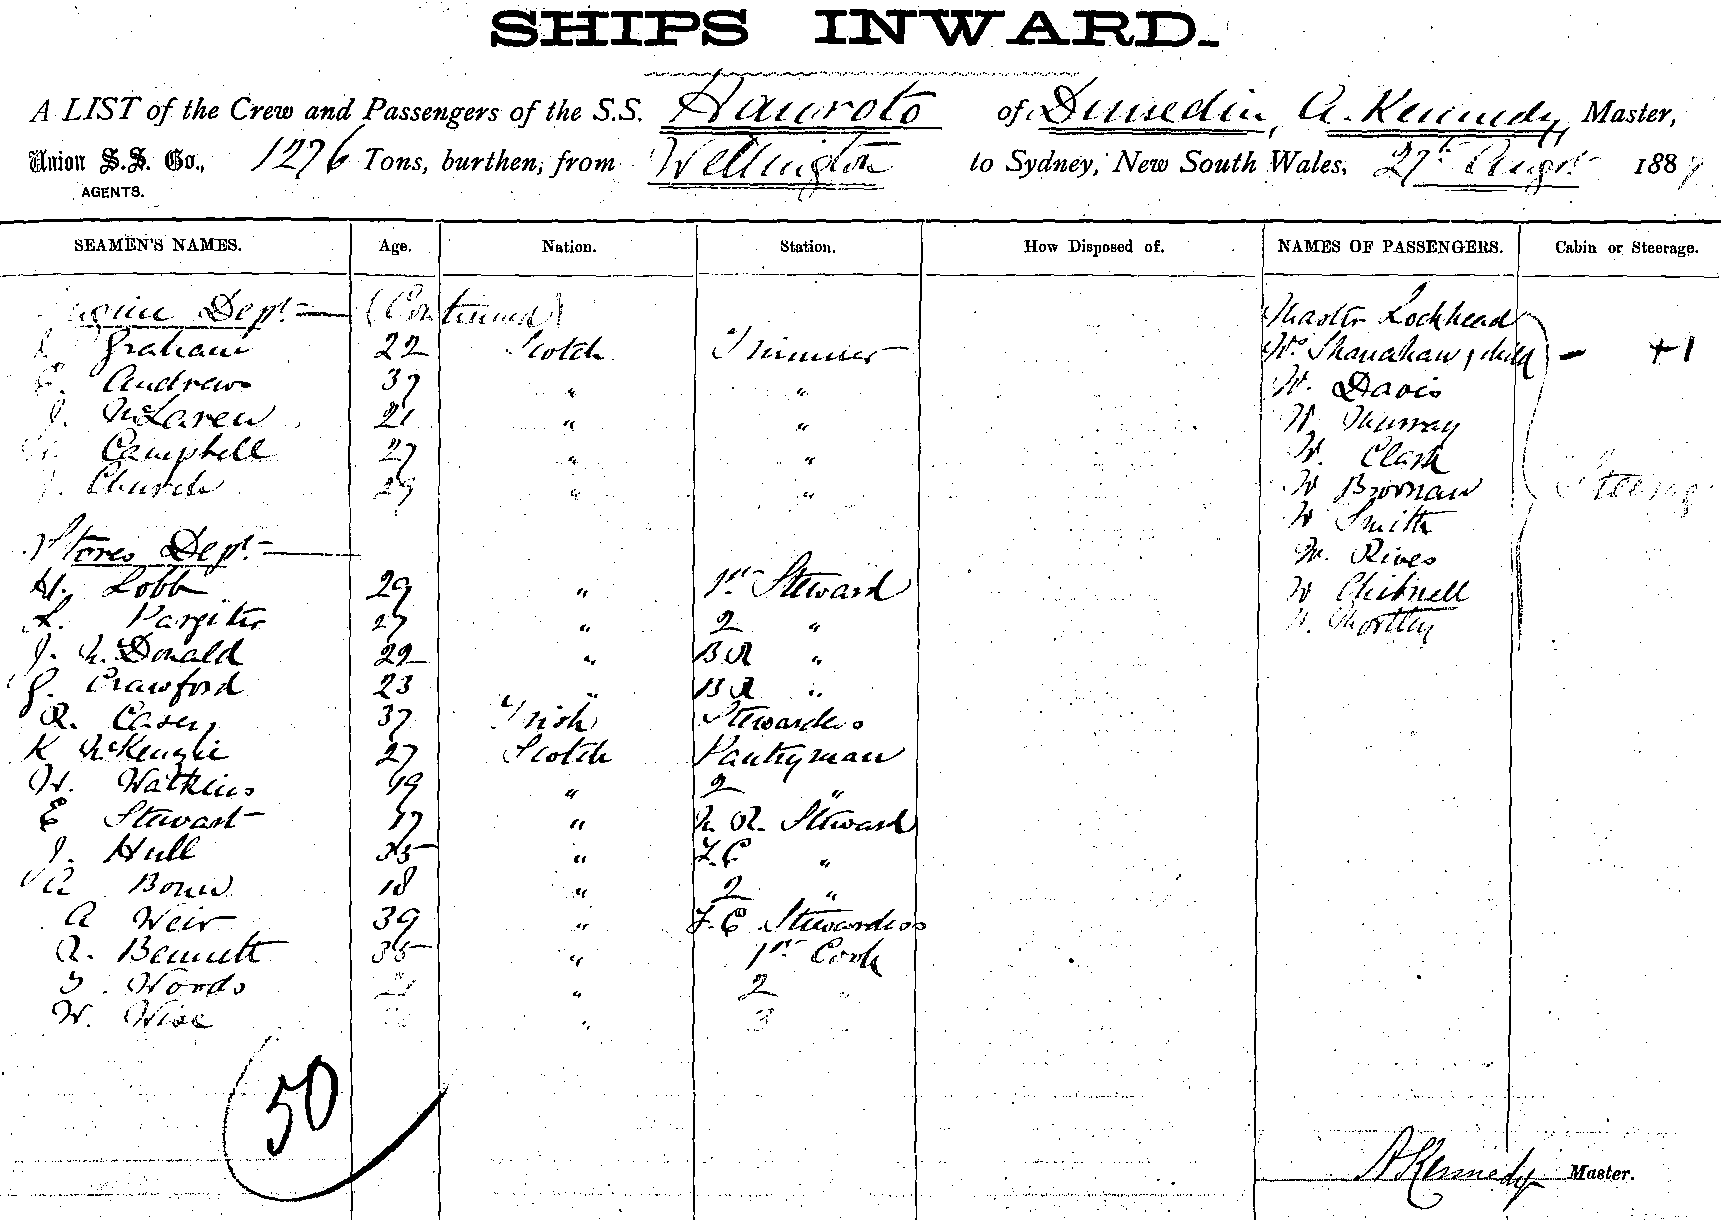 SHIPS INWARD.
A LIST of the Crew and Passengers of the S.S. Hauroto of Dunedin, A. Kennedy, Master,
Union S.S. Co., 1276 Tons, burthen, from Wellington to Sydney, New South Wales, 27th Augst 1887
AGENTS.
SEAMEN'S NAMES. Age. Nation. Station. How Disposed of. NAMES OF PASSENGERS. Cabin or Steerage.
Engine Dept (Continued) Master Lockhead
Graham 22 Scotch Trimmer Mrs Shanahan & child +1
C. Andrews 37 " " Mr. Davis
J. McLaren 21 " " Mr Murray
Campbell 27 " " Mr. Clark
J. Church 29 " " Mr Brosnan Steerage
Mr Smith
Stores Dept
Mr. Rives
H. Lobb 29 " 1st Steward Mr Chibnell
A. Pargiter 27 " 2 "
J. McDonald 22 " BR "
G. Crawford 23 " BR "
R. Casey 37 Irish Stewardess
K McKenzie 27 Scotch Pantryman
W. Watkins 19 " 2 "
E Stewart 17 " M. R. Steward
J. Hull 35 " F.C "
A 18 " 2 "
A Weir 39 " F.C Stewardess
R. Bennett 35 " 1st Cook
Woods 21 " 2 "
W. Wise " 3
50
A Kennedy Master.